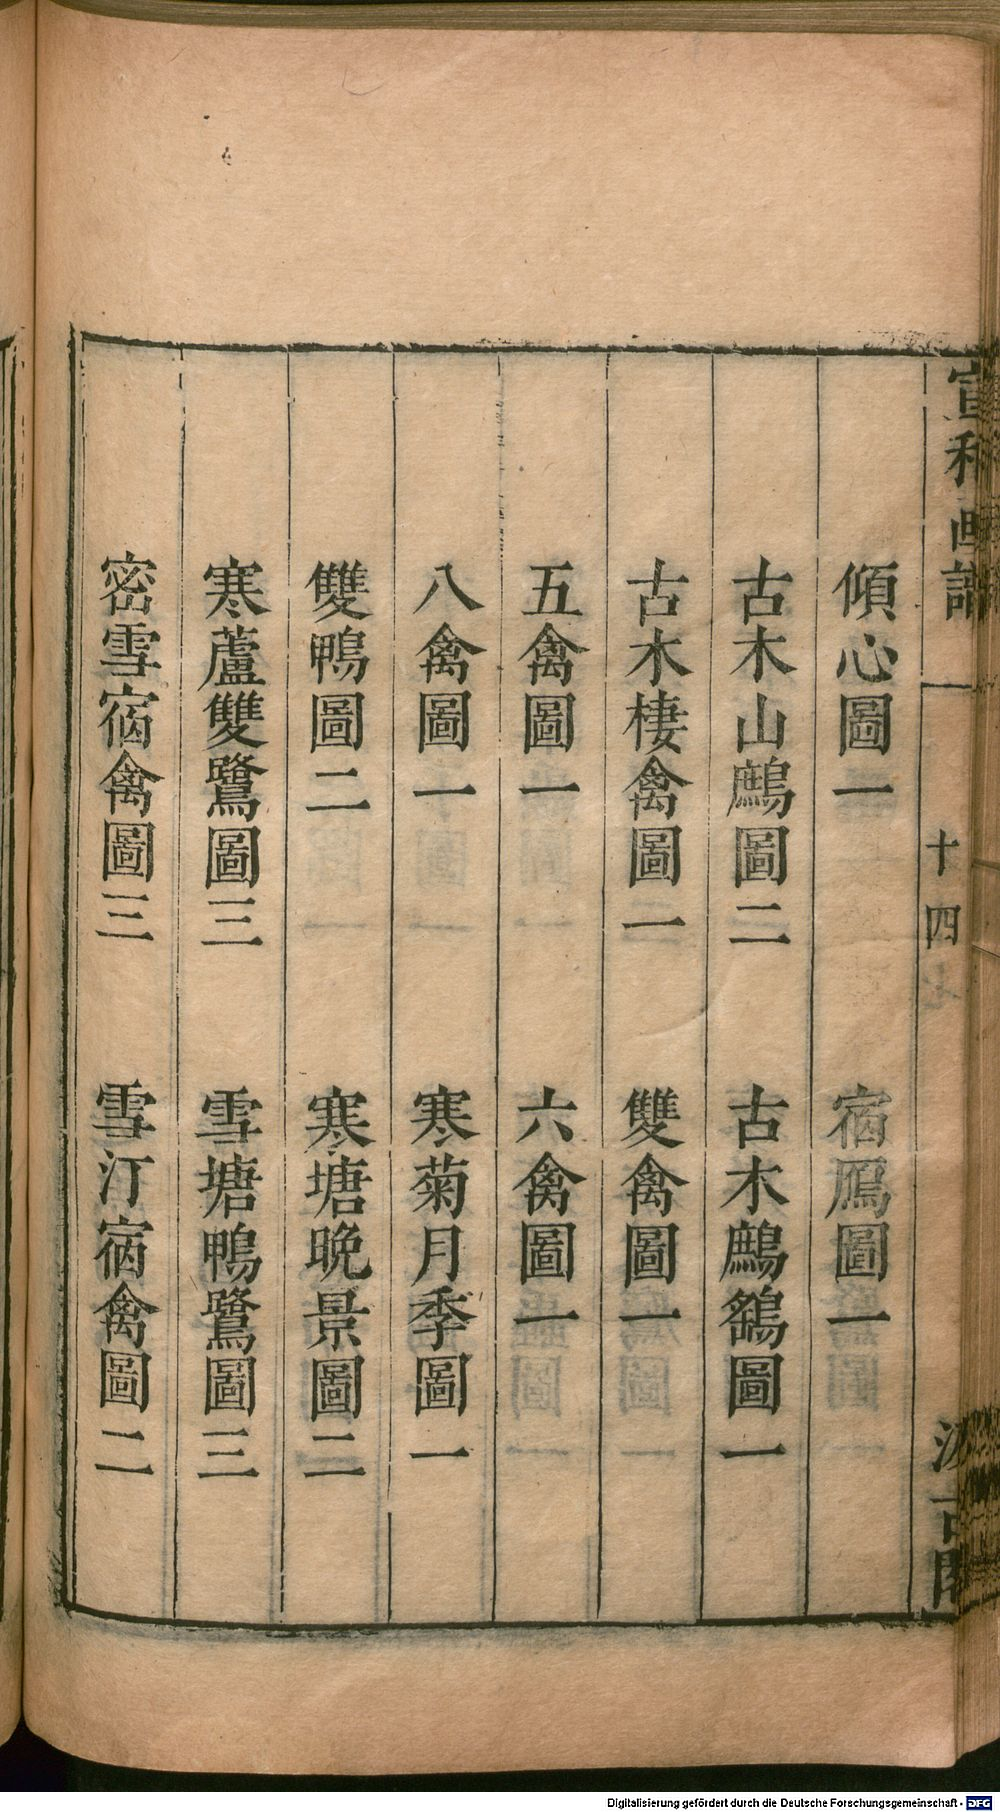 宣和畫譜 十四 汲古閣
傾心圖一 宿鴈圖一
古木山鷓圖二 古木鷓鶴圖一
古木棲禽圖一 雙禽圖一
五禽圖一 六禽圖一
八禽圖一 寒菊月季圖一
雙鴨圖二 寒塘晚景圖二
寒蘆雙鷺圖三 雪塘鴨鷺圖三
密雪宿禽圖三 雪汀宿禽圖二
Digitalisierung gefördert durch die Deutsche Forschungsgemeinschaft - DFG